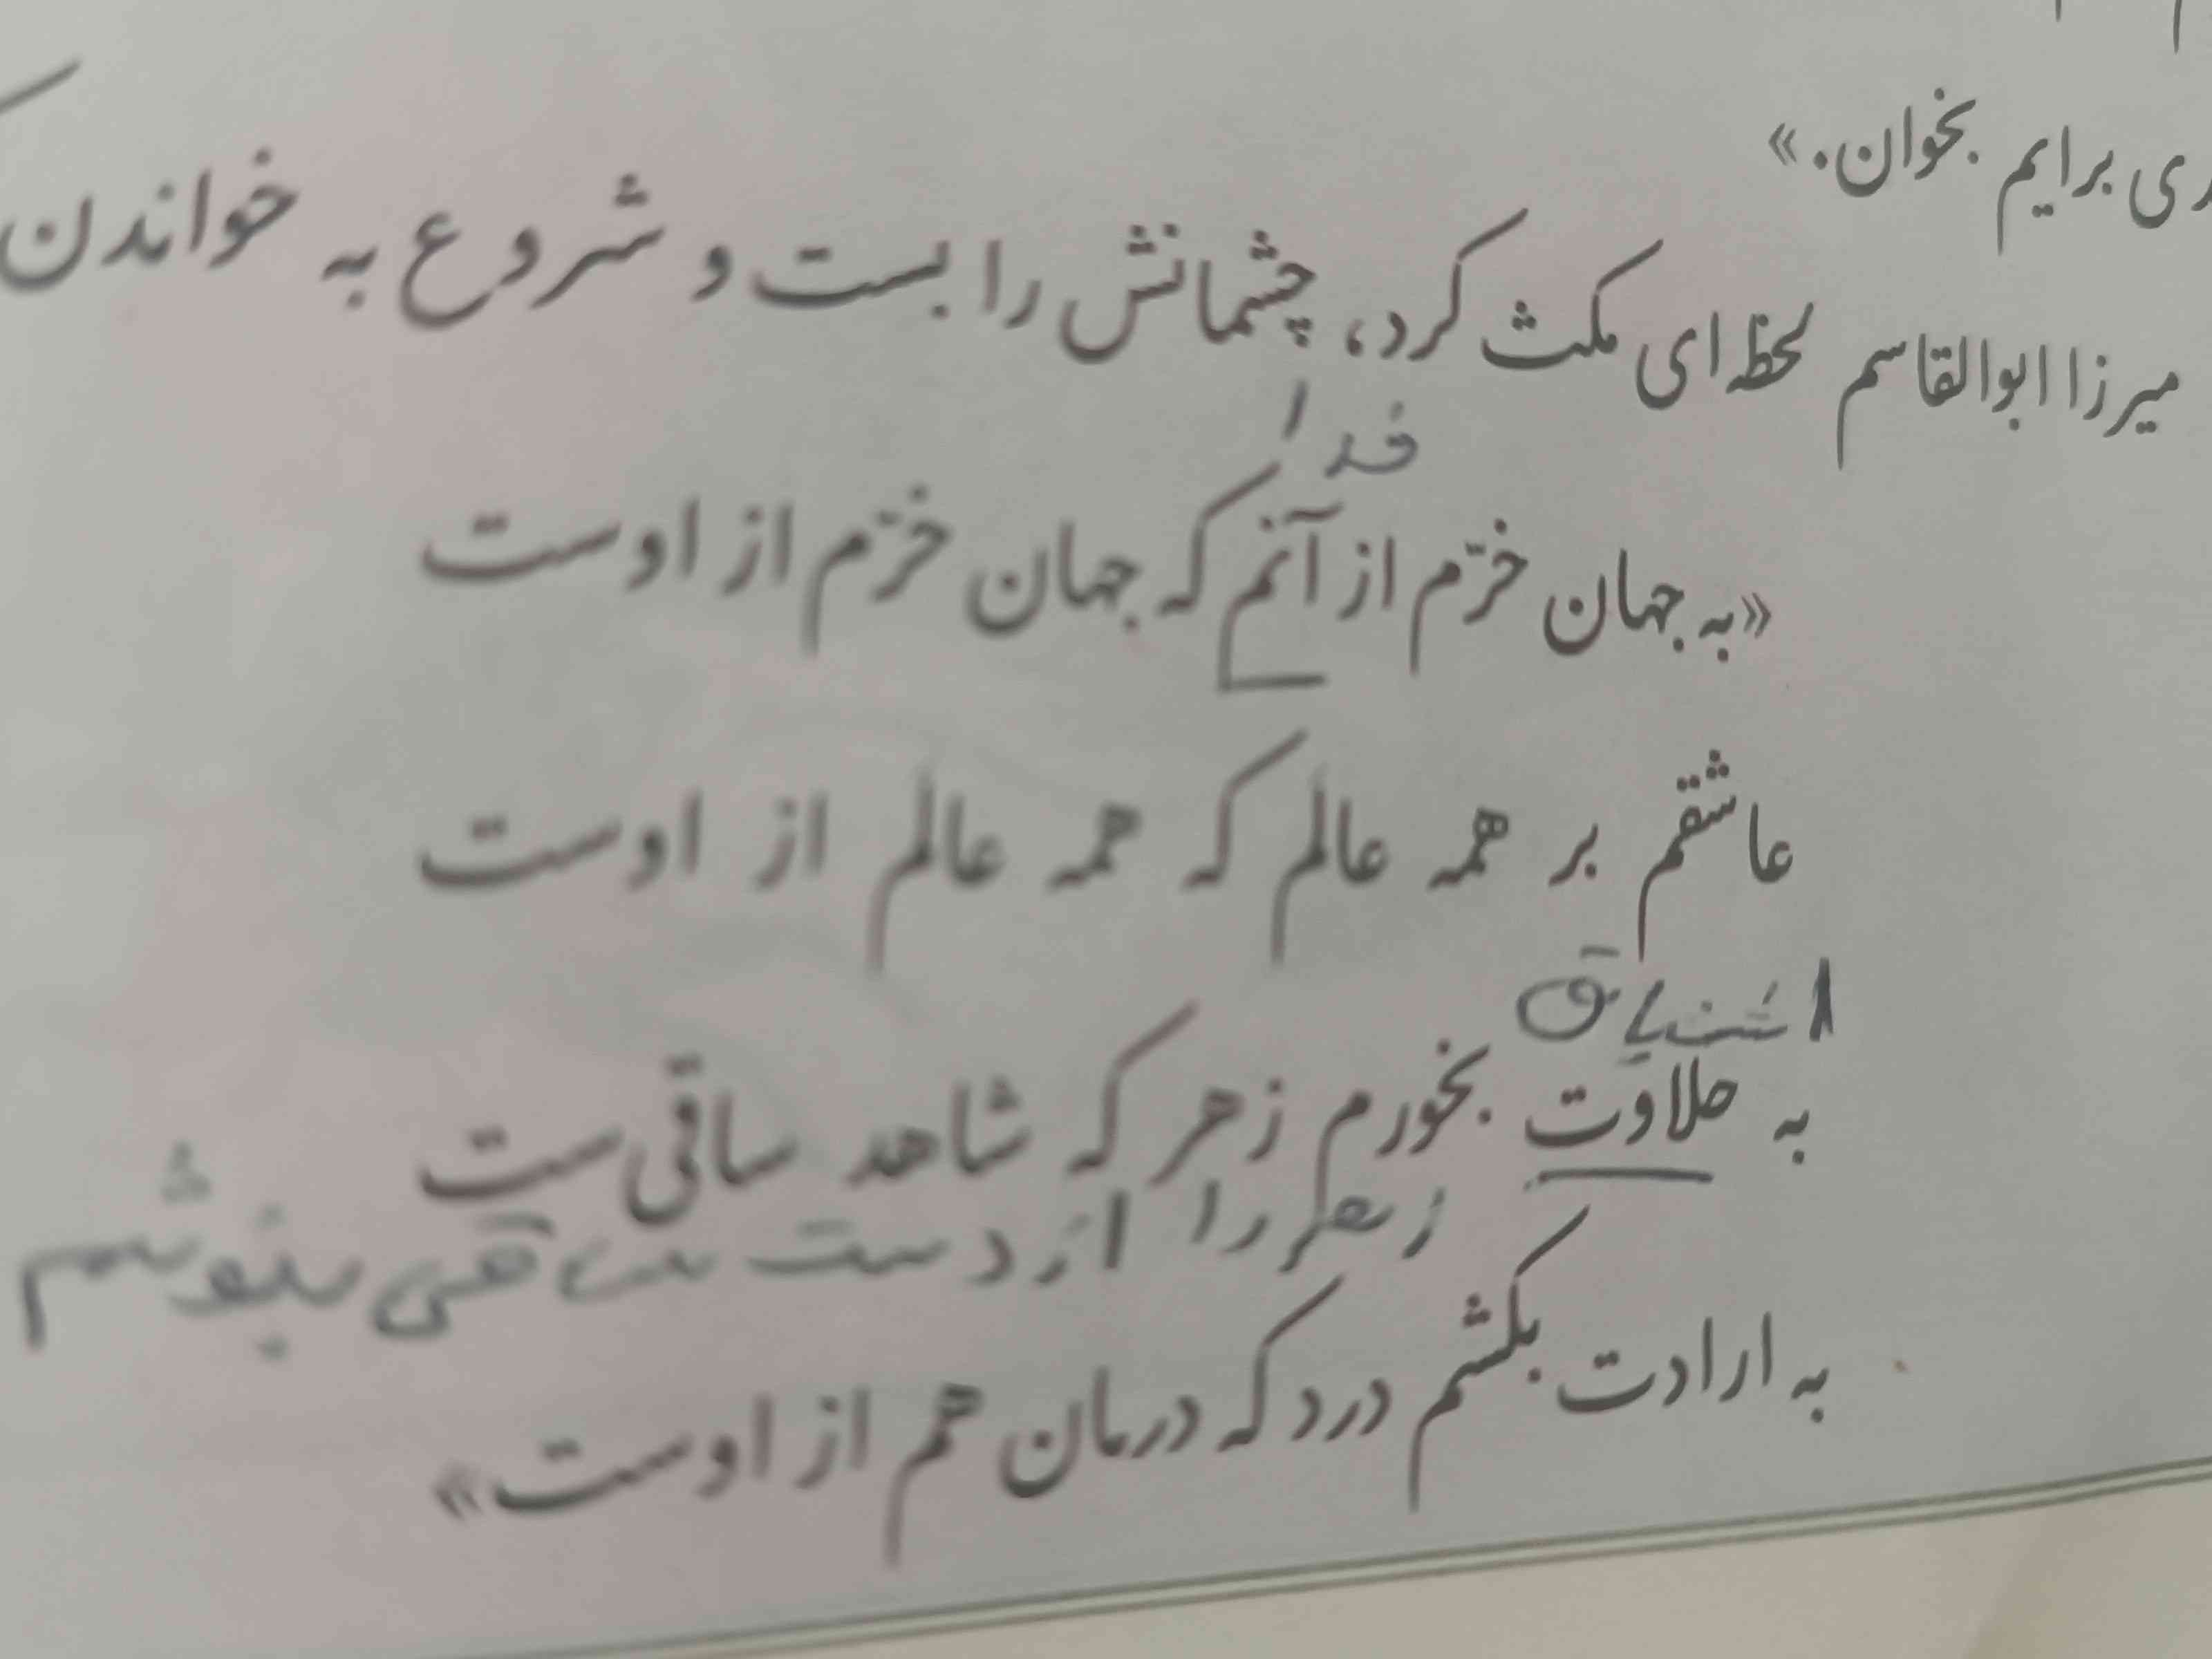 ری برایم بخوان.»
میرزا ابوالقاسم لحظه‌ای مکث کرد، چشمانش را بست و شروع به خواندن
خدا
«به جهان خرّم از آنم که جهان خرّم از اوست
عاشقم بر همه عالم که همه عالم از اوست
اشتیاق
به حلاوت بخورم زهر که شاهد ساقی‌ست
زهر را از دست ساقی بنوشم
به ارادت بکشم درد که درمان هم از اوست»